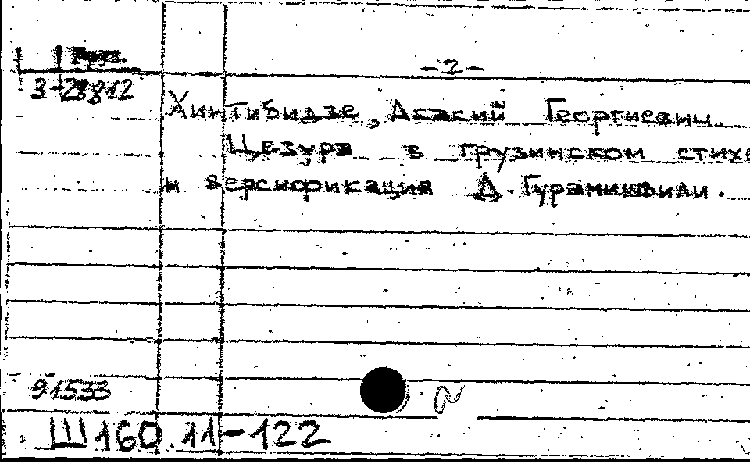 Груз.
-2-
3-28812
Хинтибидзе, Акакий Георгиевич.
Цезура в грузинском стихе
и версификация Д. Гурамишвили.
91533
Ш160.11-122